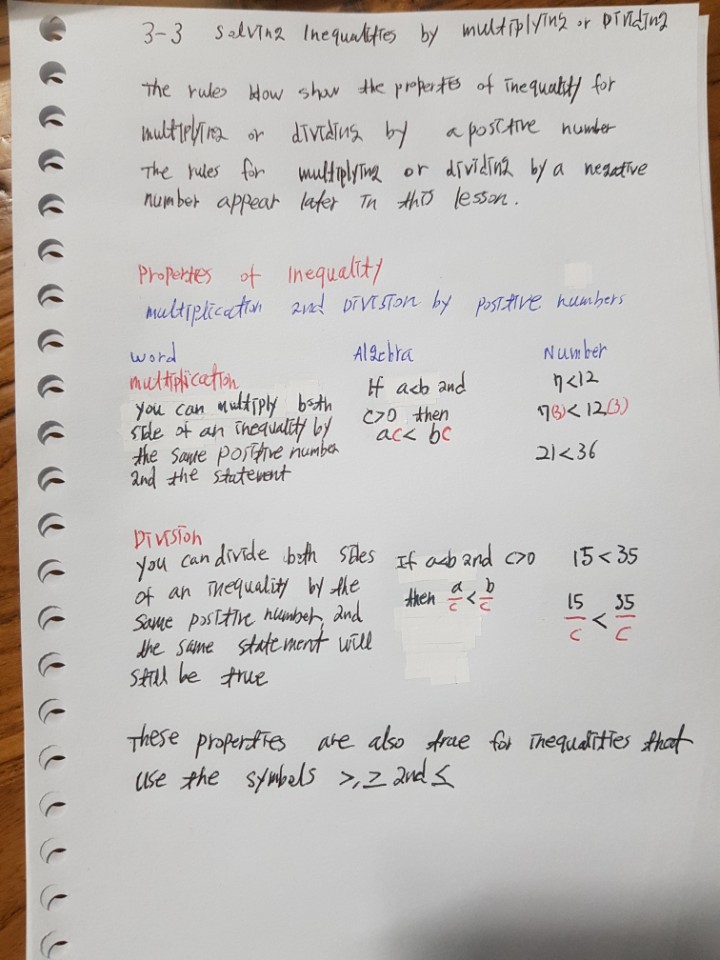 3-3 Solving Inequalities by multiplying or Dividing
The rules blow show the properties of inequality for
multiplying or dividing by a positive number
The rules for multiplying or dividing by a negative
number appear later in this lesson.
Properties of Inequality
multiplication and Division by positive numbers
word Algebra Number
multiplication
you can multiply both
side of an inequality by
the same positive number
and the statement
If a<b and
c>0 then
ac< bc
7<12
7(3)< 12(3)
21<36
Division
you can divide both sides
of an inequality by the
same positive number, and
the same statement will
still be true
If a<b and c>0
then a/c < b/c
15<35
15/c < 35/c
These properties are also true for inequalities that
use the symbols >, ≥ and ≤